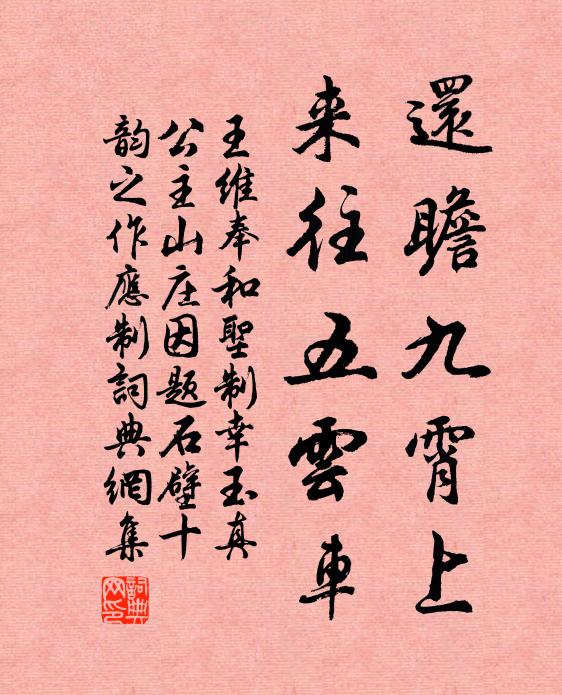 還瞻九霄上
来往五雲車
王維奉和聖制幸玉真
公主山庄因题石壁十
韵之作應制詞典網集
詞典网印